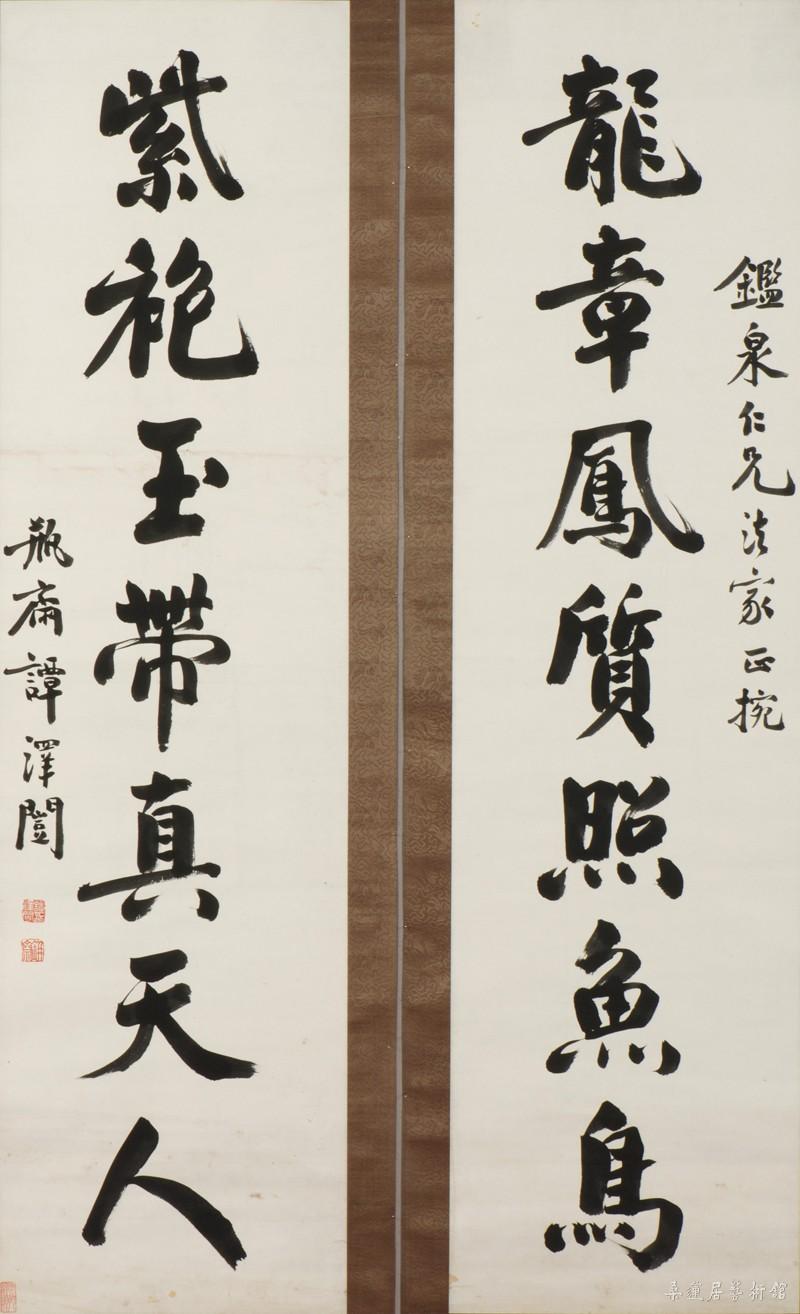 鑑泉仁兄法家正捥
龍章鳳質照魚鳥
紫袍玉帶真天人
瓶齋譚澤闓
桑蓮居藝術館